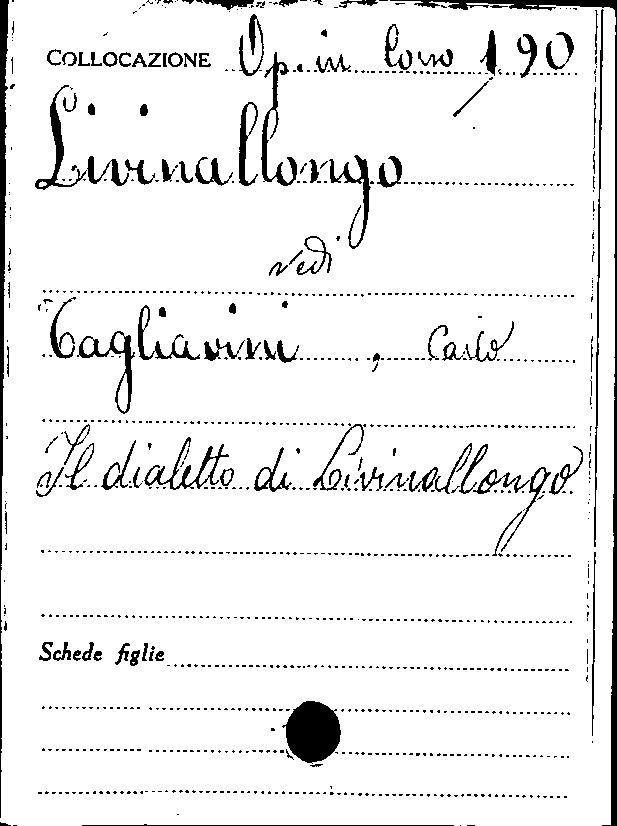 COLLOCAZIONE Op. in Corso 190
Livinallongo
vedi
Tagliavini, Carlo
Il dialetto di Livinallongo
Schede figlie